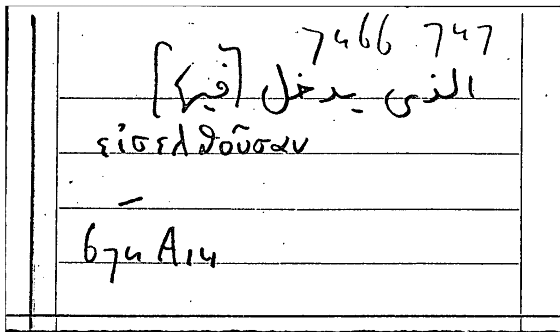 7466 747
الذى يدخل [فيها]
εἰσελθοῦσαν
–
674 A14